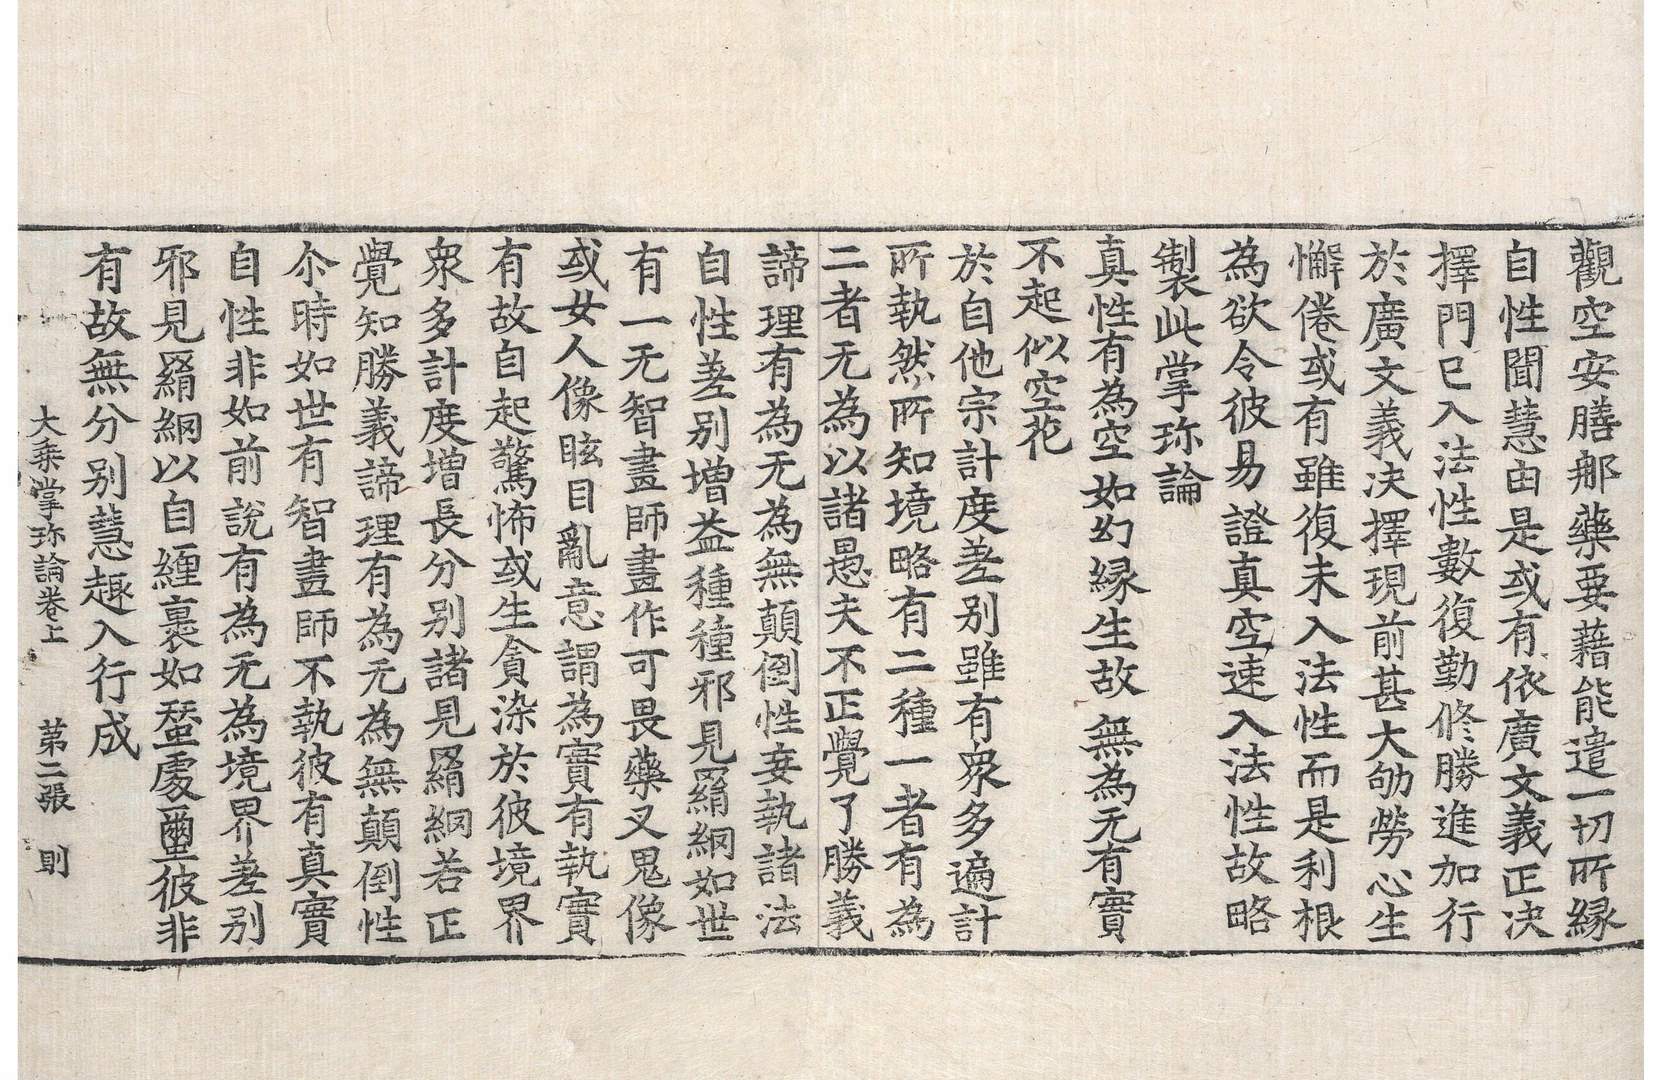 觀空安膳那藥要藉能遣一切所縁
自性聞慧由是或有依廣文義正决
擇門已入法性數復勤修勝進加行
於廣文義决擇現前甚大劬勞心生
懈倦或有雖復未入法性而是利根
為欲令彼易證真空速入法性故略
製此掌珎論
真性有為空如幻縁生故無為无有實
不起似空花
於自他宗計度差别雖有衆多遍計
所執然所知境略有二種一者有為
二者无為以諸愚夫不正覺了勝義
諦理有為无為無顛倒性妄執諸法
自性差别增益種種邪見羂網如世
有一无智畫師畫作可畏藥叉鬼像
或女人像眩目亂意謂為實有執實
有故自起驚怖或生貪染於彼境界
衆多計度增長分别諸見羂網若正
覺知勝義諦理有為无為無顛倒性
尒時如世有智畫師不執彼有真實
自性非如前說有為无為境界差别
邪見羂網以自纏裹如蝅處蠒彼非
有故無分别慧趣入行成
大乗掌珎論卷上 第二張 則